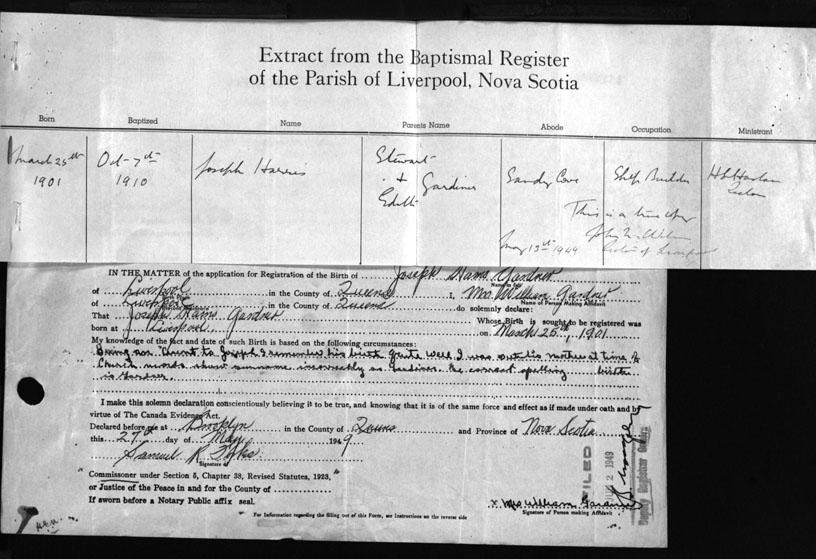 Extract from the Baptismal Register
of the Parish of Liverpool, Nova Scotia
Born Baptized Name Parents Name Abode Occupation Ministrant
March 25th 1901 Oct 7th 1910 Joseph Harris Stewart + Edith Gardiner Sandy Cove Ship Builder
This is a true copy
May 13th 1949
Rector of Liverpool
IN THE MATTER of the application for Registration of the Birth of Joseph Harris Gardner
of Liverpool in the County of Queens I, Mrs. William Gardner
of Liverpool in the County of Queens do solemnly declare:
That Joseph Harris Gardner Whose Birth is sought to be registered was
born at Liverpool on March 25th, 1901
My knowledge of the fact and date of such Birth is based on the following circumstances:
Being an Aunt to Joseph I remember his birth quite well. I was at his mother at time
Church records show surname incorrectly as Gardiner. The correct spelling
is Gardner.
I make this solemn declaration conscientiously believing it to be true, and knowing that it is of the same force and effect as if made under oath and by
virtue of The Canada Evidence Act.
Declared before me at Brooklyn in the County of Queens and Province of Nova Scotia
this 27th day of May 1949
Samuel R
Signature of
Commissioner under Section 5, Chapter 38, Revised Statutes, 1923,
or Justice of the Peace in and for the County of
If sworn before a Notary Public affix seal.
x Mrs William Gardner
Signature of Person making Affidavit
For Information regarding the filling out of this Form, see Instructions on the reverse side
FILED
2 1949
Deputy Registrar General